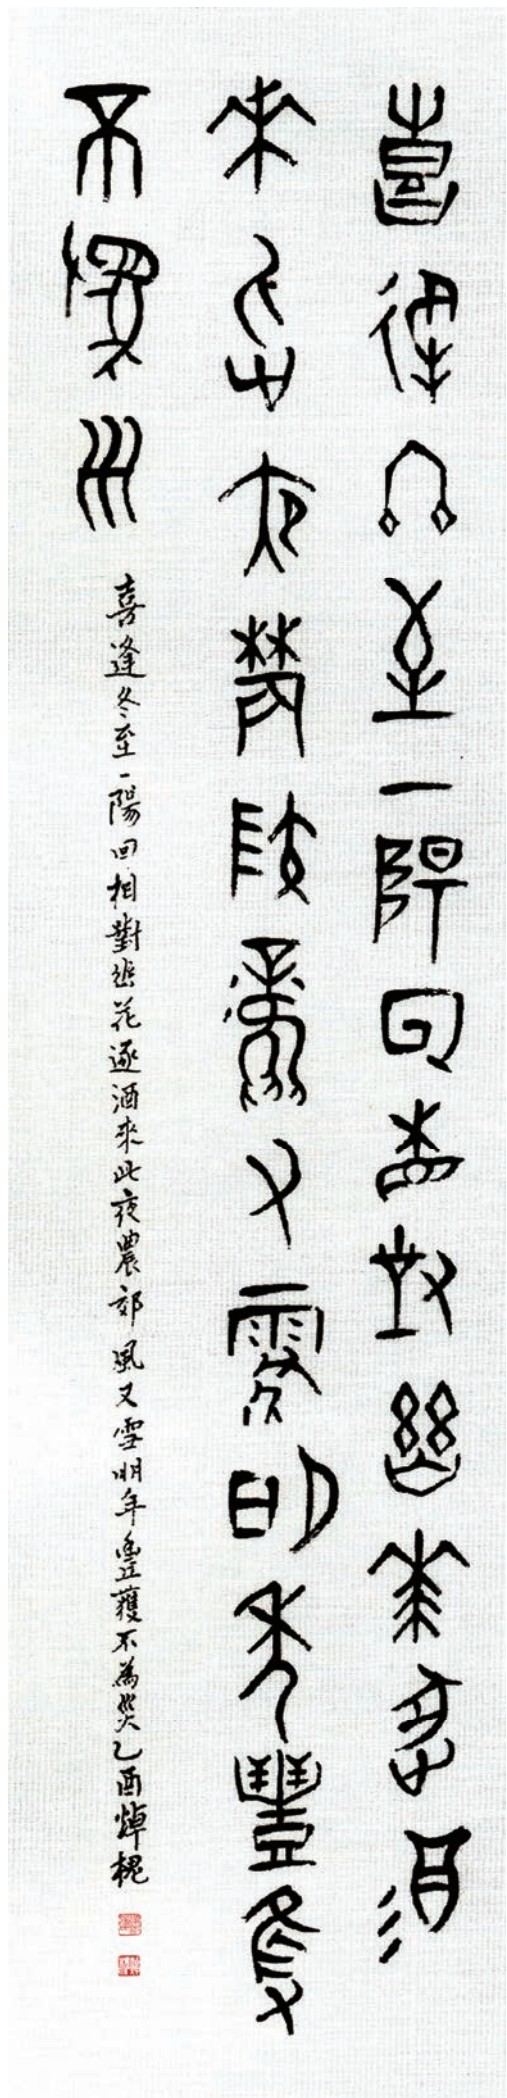 喜逢冬至一陽回相對幽花逐酒
來此夜農郊風又雪明年豐獲
不為災
喜逢冬至一陽回相對幽花逐酒來此夜農郊風又雪明年豐獲不為災乙酉焯